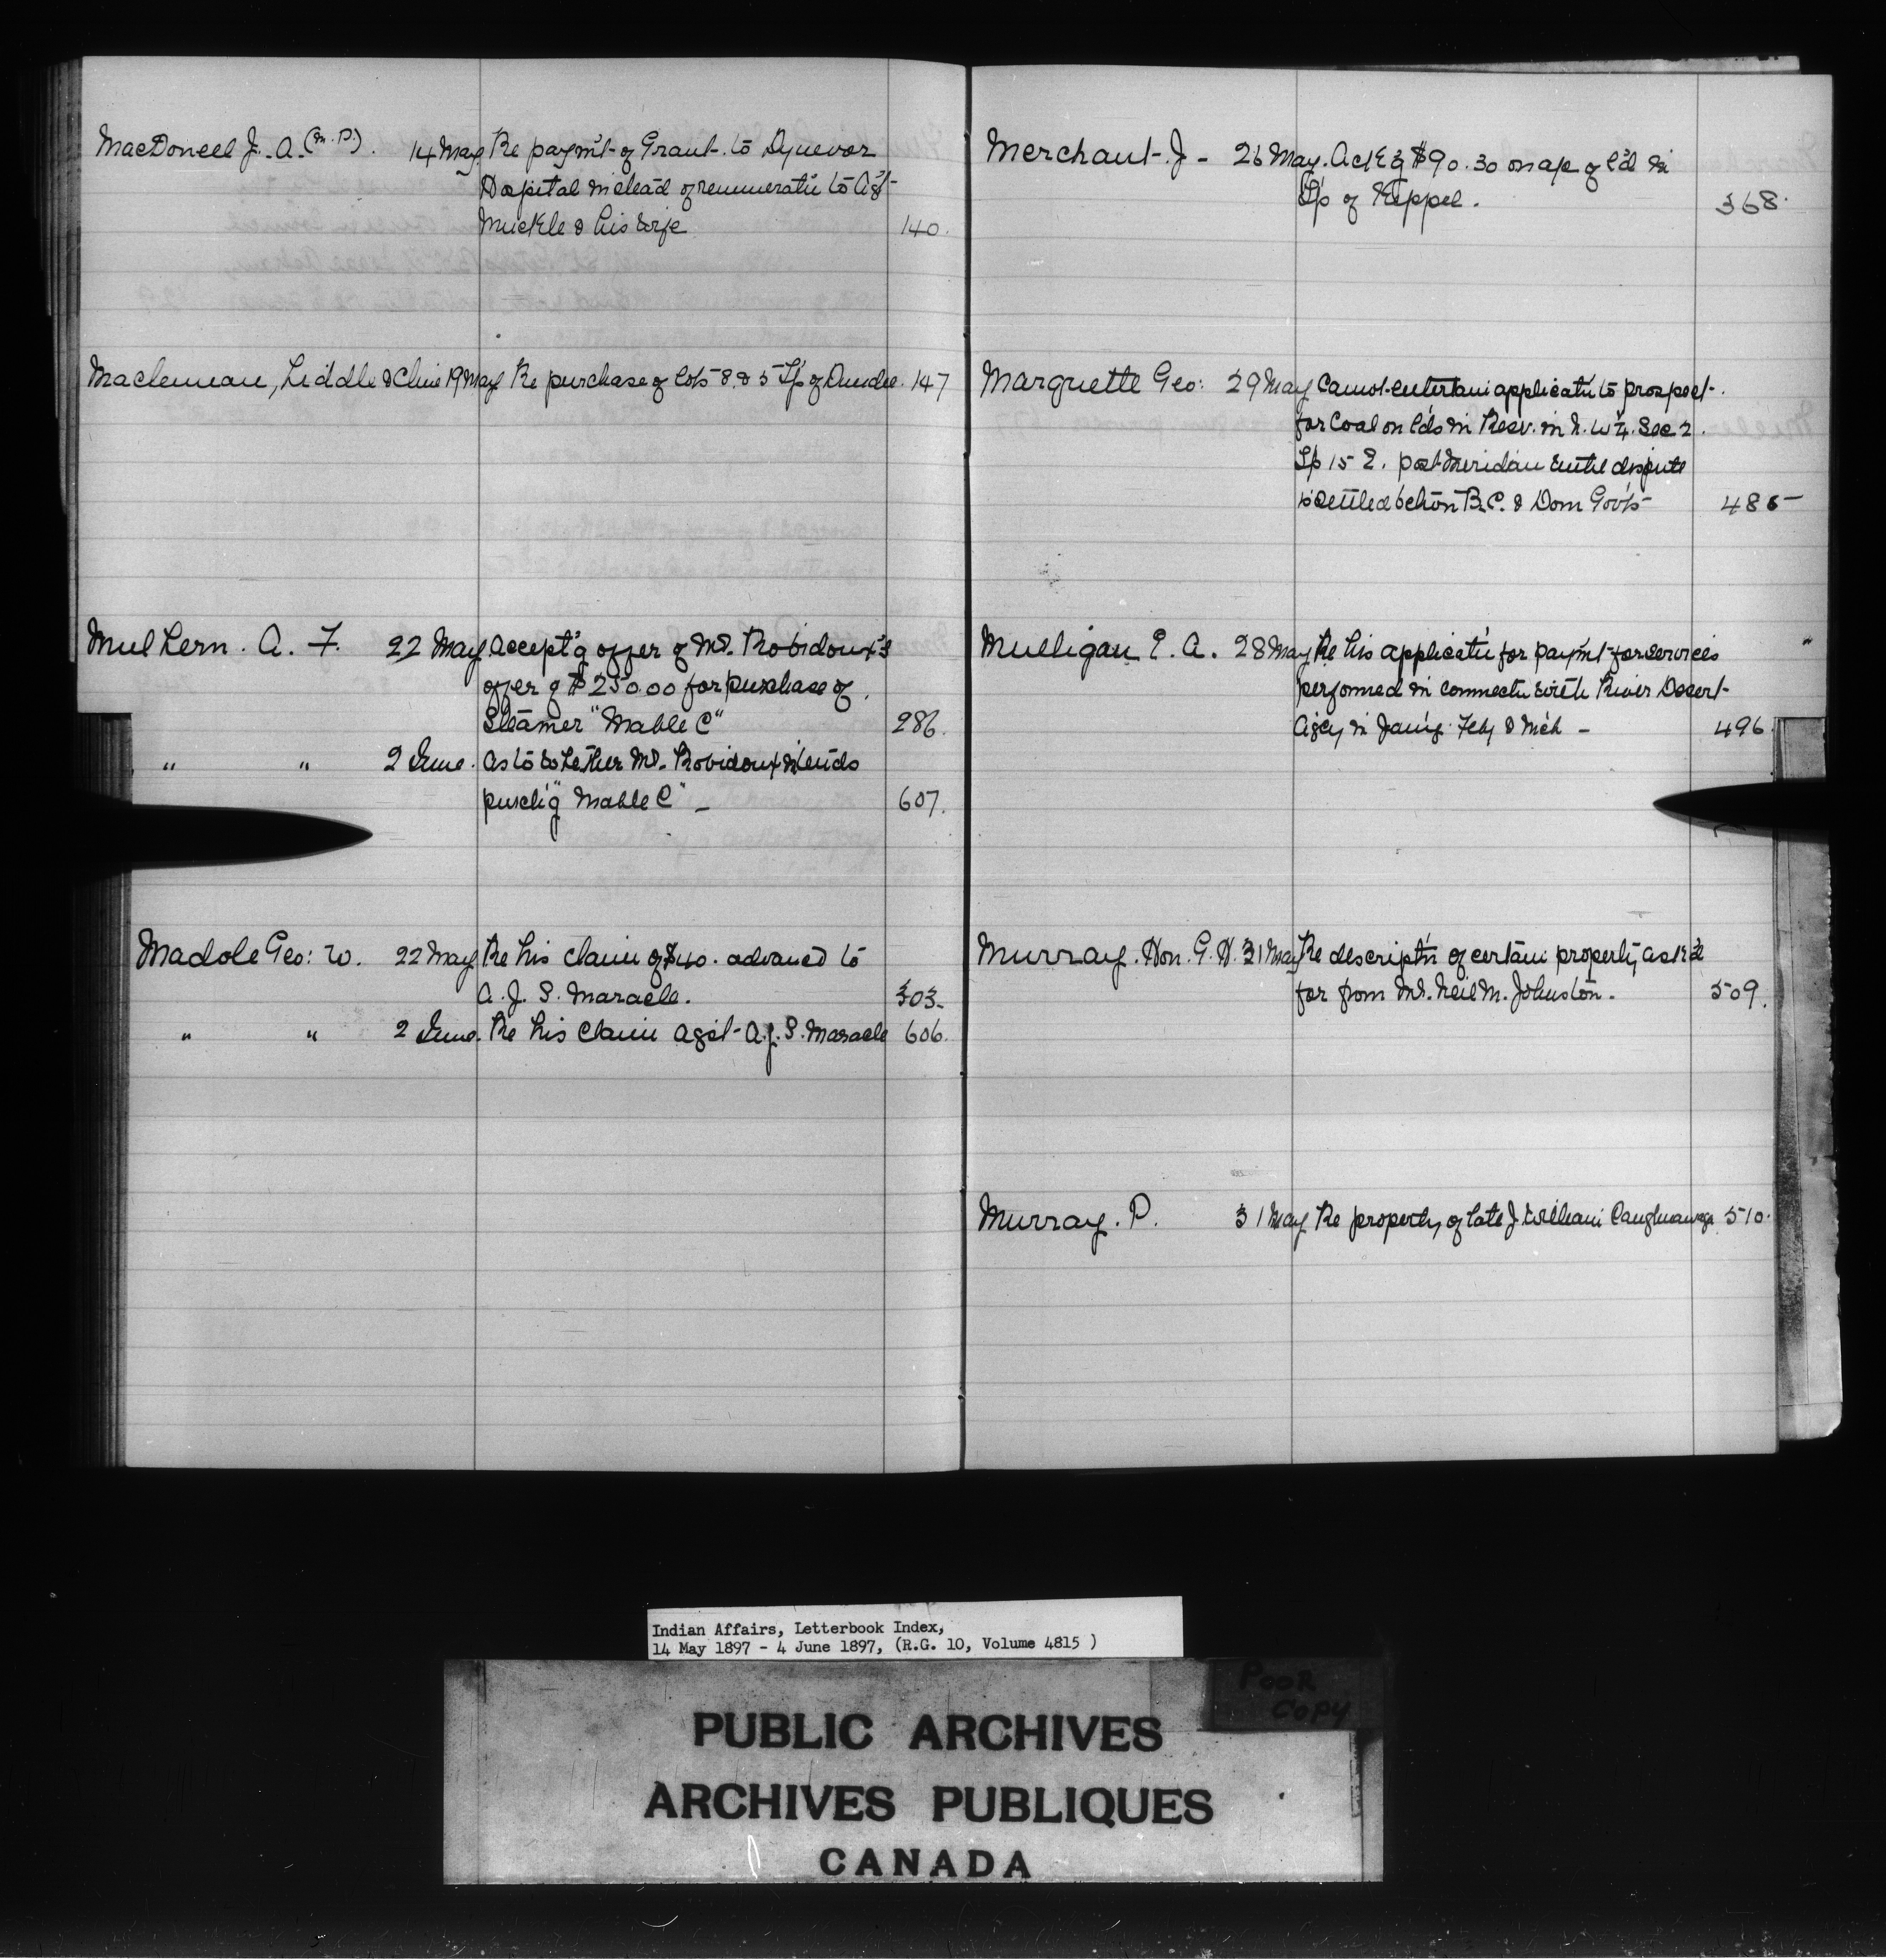 MacDonell J. A. (M.P.). 14 May Re paym't of Grant to Dynevor
Hospital instead of remunerat'n to Ag't
Muckle & his wife 140.
Maclennan, Liddle & Cline 19 May Re purchase of lots 8 & 5 Tp of Dundee. 147
Mulhern. A. F. 22 May Accept'g offer of Mr. Robidoux's
offer of $250.00 for purchase of
Steamer "Mable C" 286.
" " 2 June. As to whether Mr. Robidoux intends
purch'g "Mable C" - 607.
Madole Geo: W. 22 May Re his claim of $40. advanced to
A. J. S. Maracle. 303.
" " 2 June. Re his claim agst A. J. S. Maracle 606.
Merchant. J - 26 May. Ack'g $90.30 on a/c of l'd in
Tp of Keppel. 368.
Marquette Geo: 29 May Cannot entertain applicat'n to prospect
for Coal on l'ds in Resv. in N. W 1/4. Sec 2.
Tp 15 E. post Meridian until dispute
is settled betw'n B.C. & Dom Gov'ts 485
Mulligan E. A. 28 May Re his applicat'n for paym't for services
performed in connect'n with River Desert
Ag'cy in Jan'y. Feby & Mch - 496.
Murray. Hon. G. H. 31 May Re descript'n of certain property ask'd
for from Mr. Neil M. Johnston. 509.
Murray. P. 31 May Re property of late J. William Caughnawaga 510.
Indian Affairs, Letterbook Index,
14 May 1897 - 4 June 1897, (R.G. 10, Volume 4815 )
POOR
COPY
PUBLIC ARCHIVES
ARCHIVES PUBLIQUES
CANADA